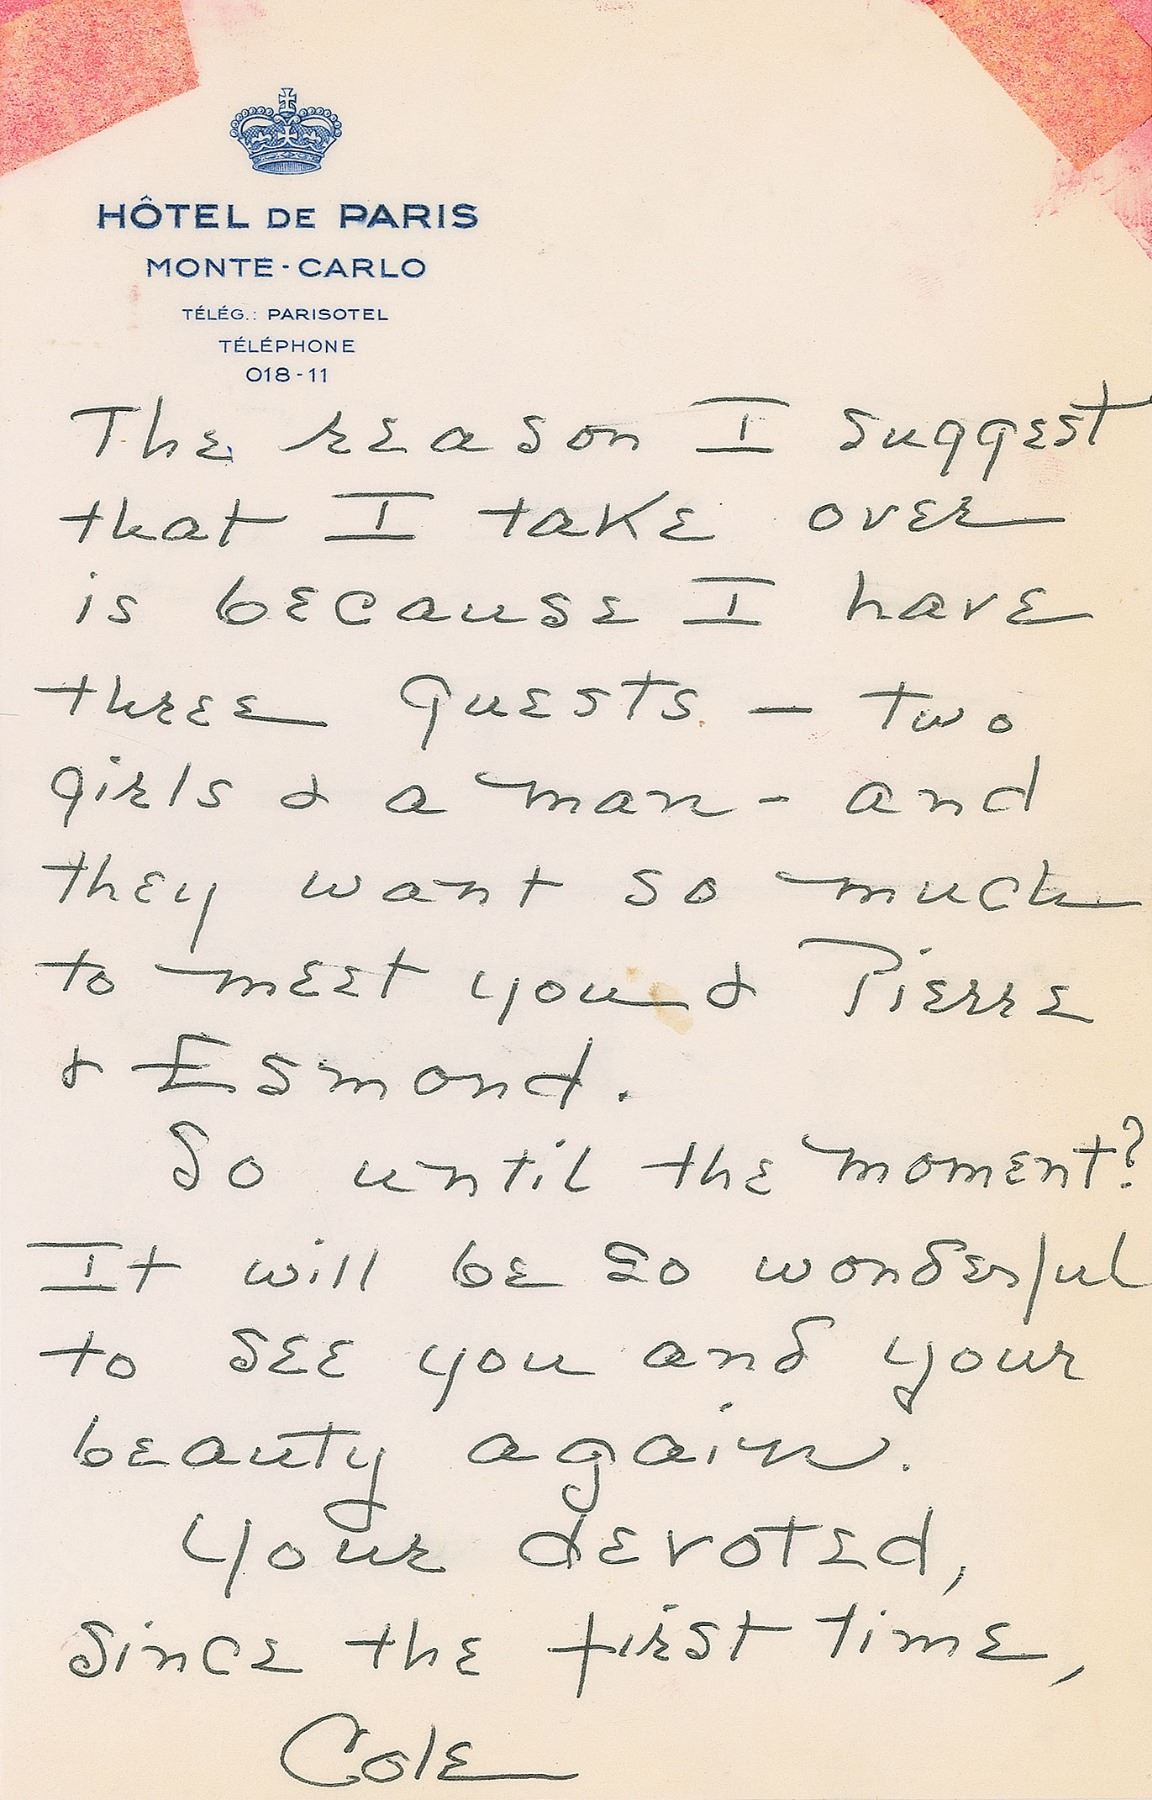 HÔTEL DE PARIS
MONTE-CARLO
TÉLÉG.: PARISOTEL
TÉLÉPHONE
018-11
The reason I suggest
that I take over
is because I have
three guests — two
girls & a man - and
they want so much
to meet you & Pierre
& Esmond.
So until the moment?
It will be so wonderful
to see you and your
beauty again.
Your devoted,
since the first time,
Cole